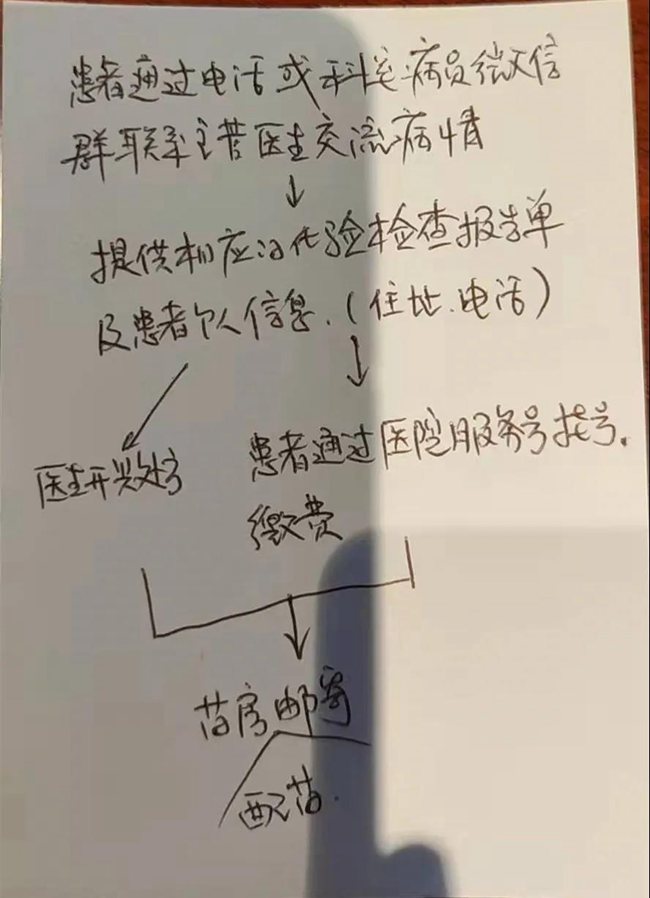 患者通过电话或科室病员微信
群联系主管医生交流病情
提供相应的化验检查报告单
及患者个人信息.(住地.电话)
医生开具处方
患者通过医院服务号挂号.
缴费
药房邮寄
配药.